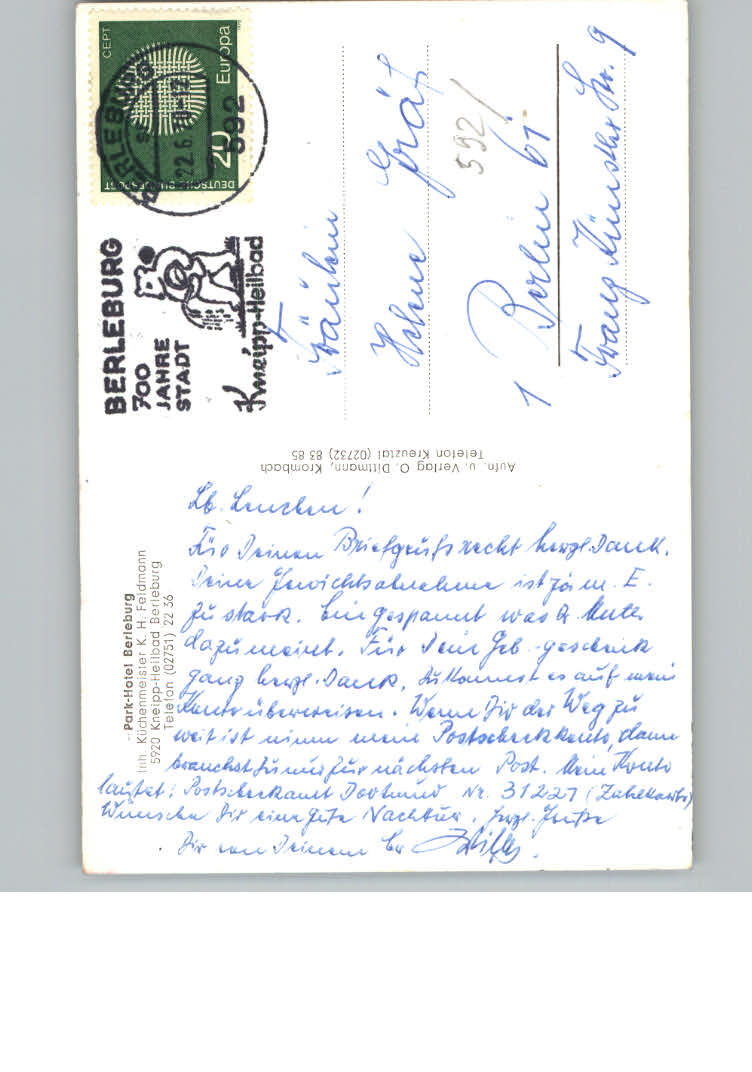 CEPT
Europa
20
DEUTSCHE BUNDESPOST
BERLEBURG
22.6.70-12
592
BERLEBURG
700
JAHRE
STADT
Kneipp-Heilbad
Fräulein
Helene Gräf
592/
1 Berlin 61
Franz Künstler Str. 9
Aufn. u. Verlag O. Dittmann, Krombach
Telefon Kreuztal (02732) 83 85
Park-Hotel Berleburg
Inh. Küchenmeister K. H. Feldmann
5920 Kneipp-Heilbad Berleburg
Telefon (02751) 22 36
Lb. Lenchen!
Für Deinen Briefgruß recht herzl. Dank.
Deine Gewichtsabnahme ist ja m. E.
zu stark. Bin gespannt was
dazu meint. Für Dein Geb.-geschenk
ganz herzl. Dank. Du kannst es auf mein
Konto überweisen. Wenn Dir der Weg zu
weit ist nimm mein Postscheckkonto, dann
brauchst Du nur zur nächsten Post. Mein Konto
lautet: Postscheckamt Dortmund Nr. 31227 (Zahlkarte)
Wünsche Dir eine gute Nachkur. Herzl. Grüße
Dir von Deinem Br. Willy.